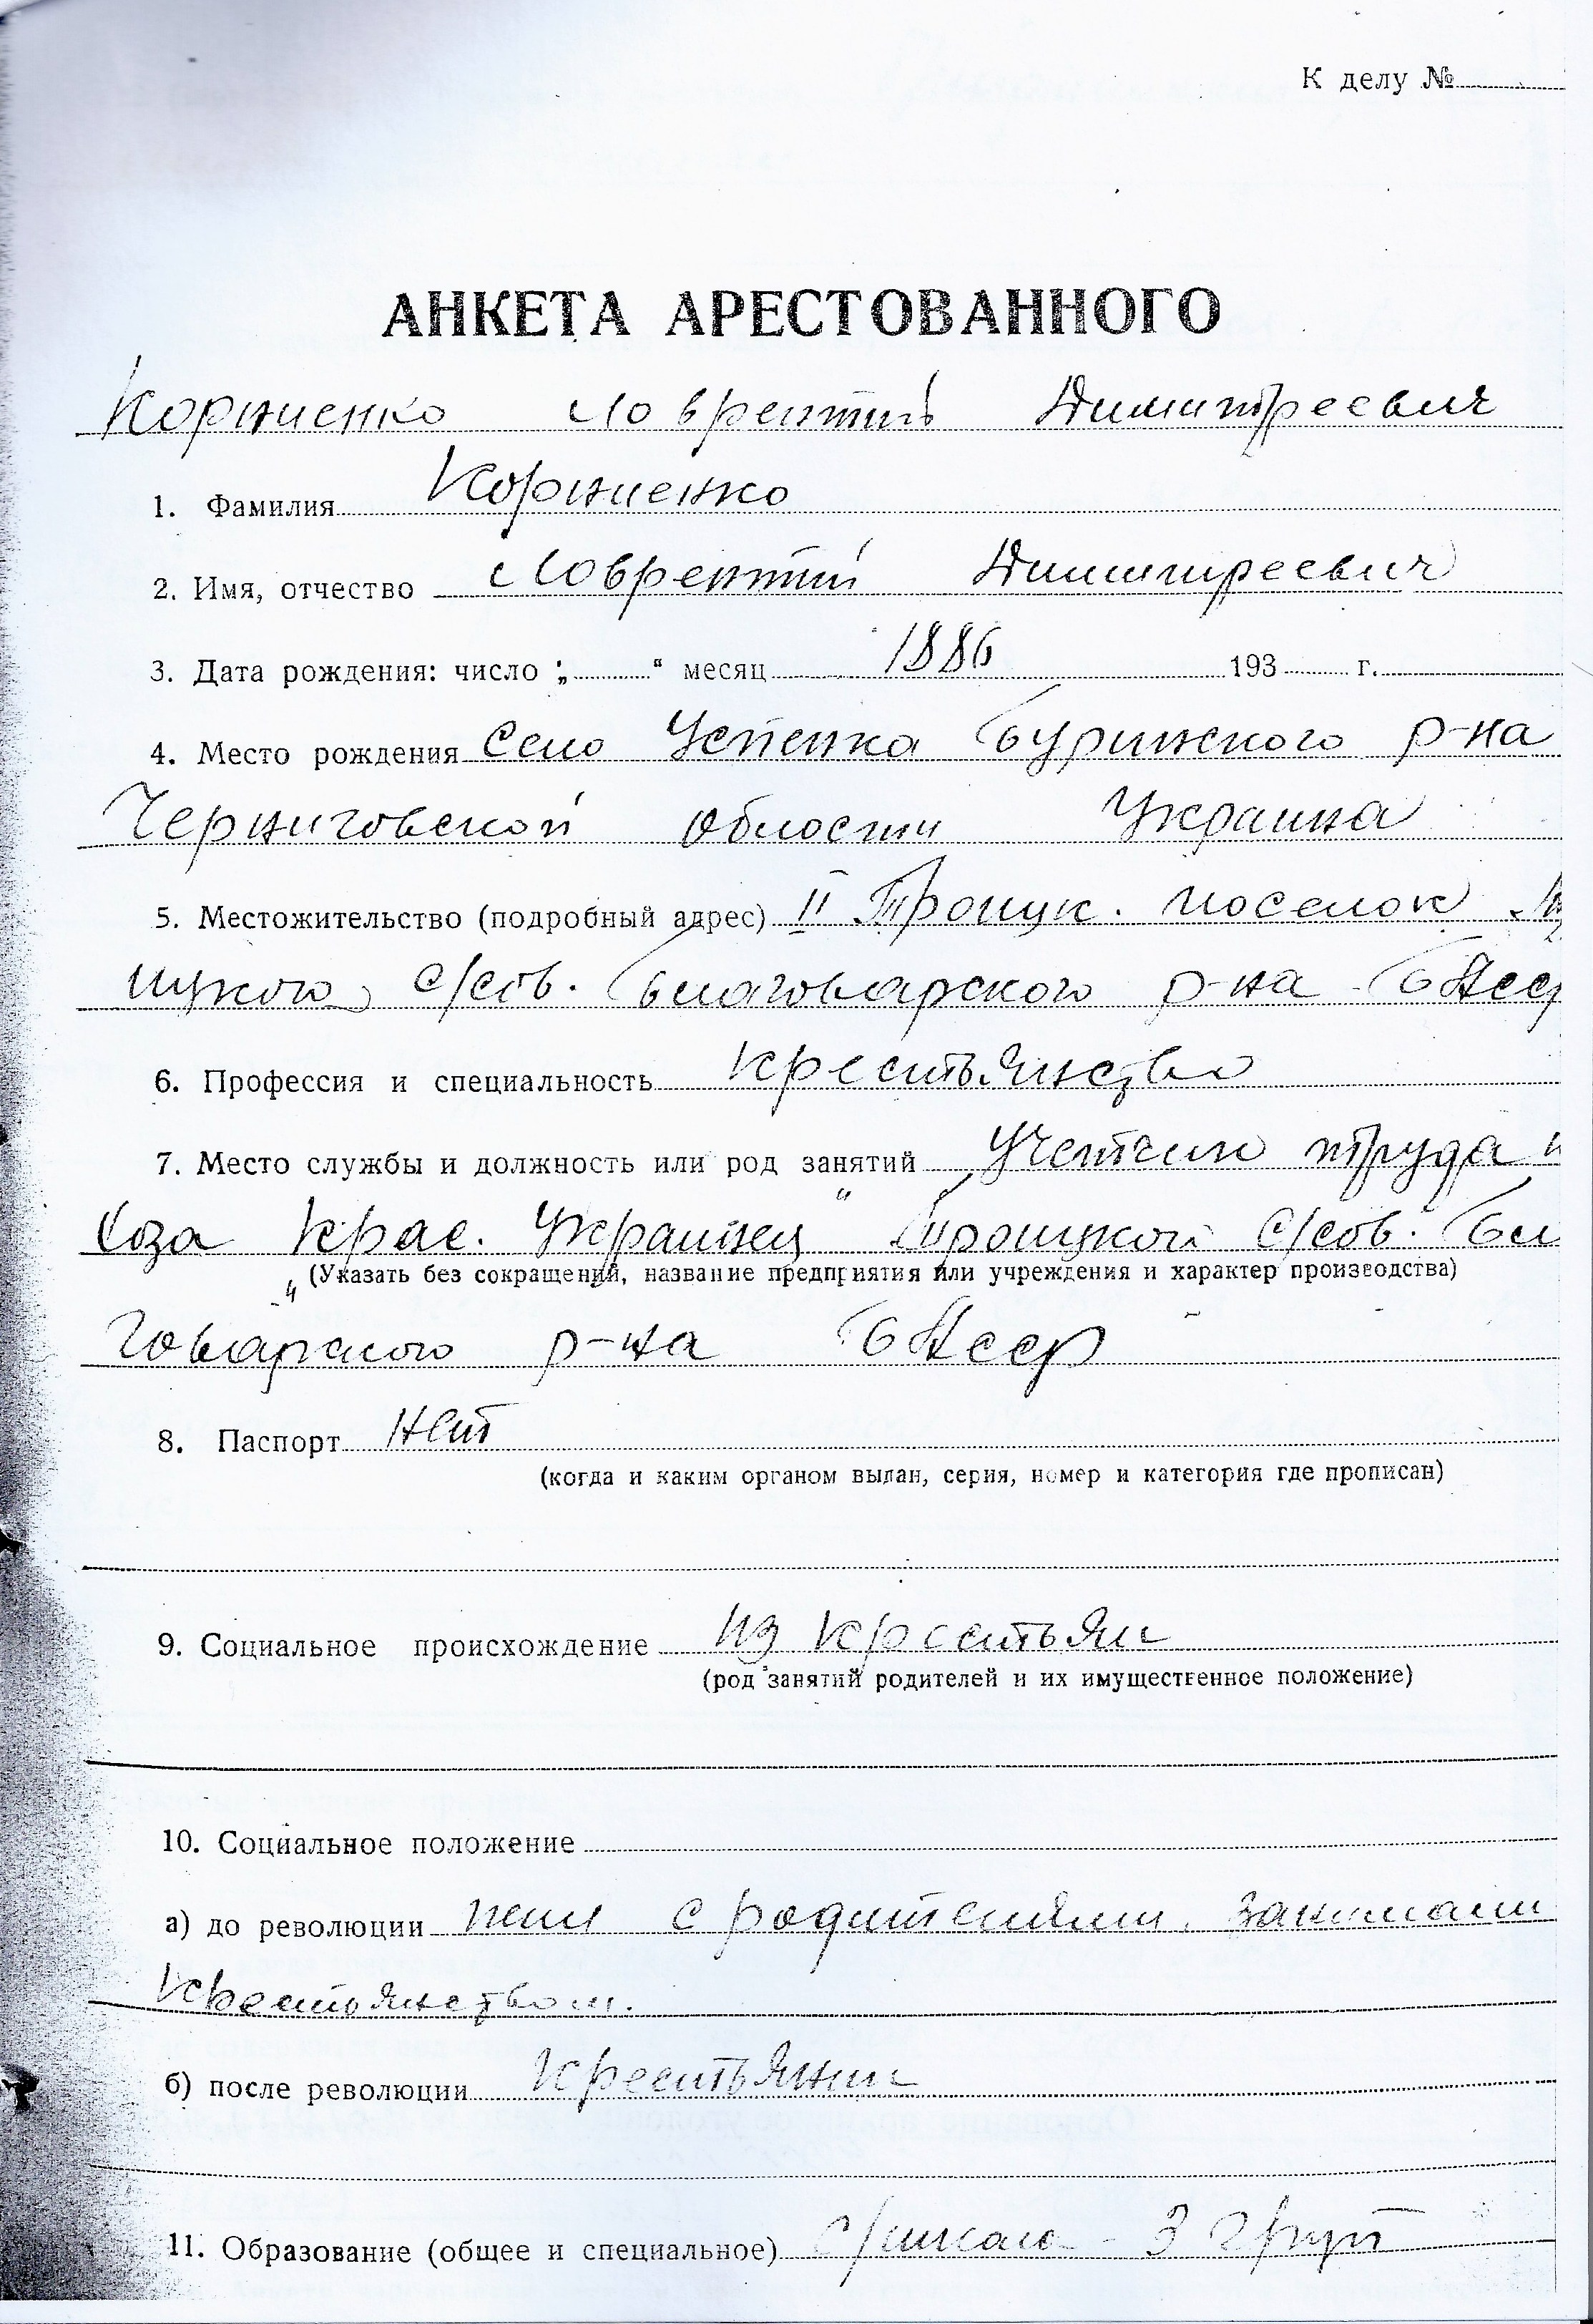 К делу №
АНКЕТА АРЕСТОВАННОГО
Корниенко Ловрентий Димитреевич
1. Фамилия Корниенко
2. Имя, отчество Ловрентий Димитреевич
3. Дата рождения: число „ “ месяц 1886 193 г.
4. Место рождения Село Успенка Буринского р-на
Черниговской области Украина
5. Местожительство (подробный адрес) II Троицк. поселок
цкого с/сов. Благоварского р-на БАССР
6. Профессия и специальность крестьянство
7. Место службы и должность или род занятий Учетчик труда к
хоза „Крас. Украинец“ Троицкой с/сов. Бла
(Указать без сокращений, название предприятия или учреждения и характер производства)
говарского р-на БАССР
8. Паспорт нет
(когда и каким органом выдан, серия, номер и категория где прописан)
9. Социальное происхождение из крестьян
(род занятий родителей и их имущественное положение)
10. Социальное положение
а) до революции жил с родителями. занимали
крестьянством.
б) после революции крестьянин
11. Образование (общее и специальное) с/школа - 3 груп